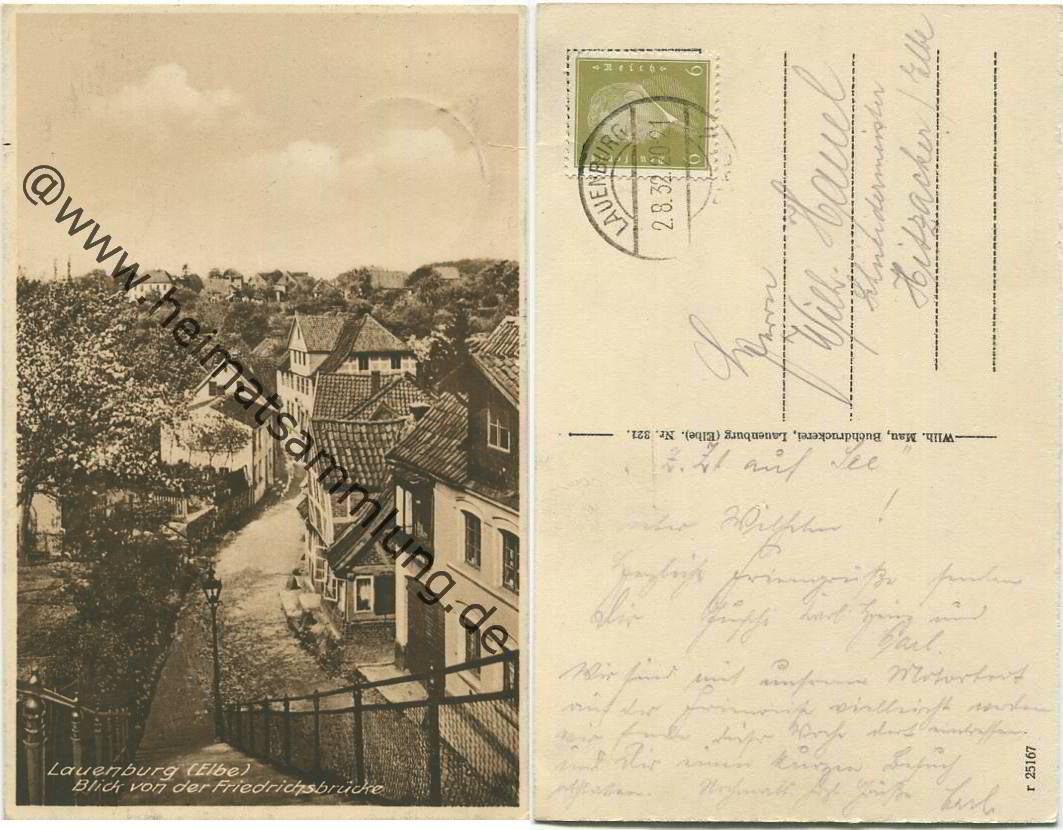 @www.heimatsammlung.de
Lauenburg (Elbe)
Blick von der Friedrichsbrücke
6 6
LAUENBURG
2.8.32.20-21
Herrn
Wilh. Hauel
Schneidermeister
Hitzacker / Elbe
Wilh. Mau, Buchdruckerei, Lauenburg (Elbe). Nr. 321.
z. Zt auf See
Wilhelm !
Herzliche Feriengrüße senden
Dir Karl Heinz und
Carl.
Wir sind mit unserem Motorboot
auf der vielleicht werden
wir Ende dieser Woche dort eintreffen
und Dir einen kurzen Besuch
abstatten. Nochmals Grüße Carl
r 25167